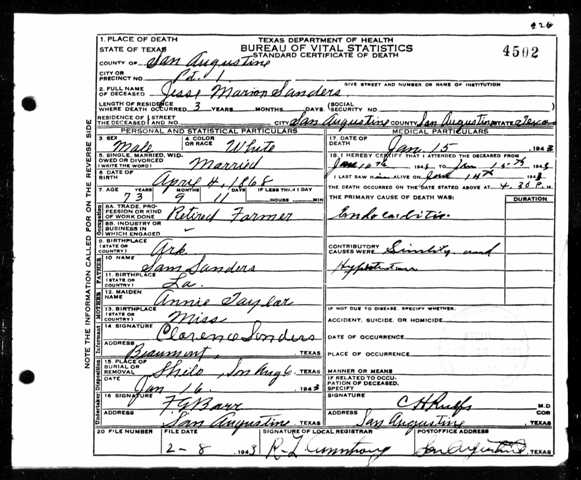 424
4502
TEXAS DEPARTMENT OF HEALTH
BUREAU OF VITAL STATISTICS
STANDARD CERTIFICATE OF DEATH
1. PLACE OF DEATH
STATE OF TEXAS
COUNTY OF San Augustine
CITY OR PRECINCT NO. Pct. 1
GIVE STREET AND NUMBER OR NAME OF INSTITUTION
2. FULL NAME OF DECEASED Jesse Marion Sanders
LENGTH OF RESIDENCE WHERE DEATH OCCURRED 3 YEARS MONTHS DAYS (SOCIAL SECURITY NO.
RESIDENCE OF THE DECEASED STREET AND NO. CITY San Augustine COUNTY San Augustine STATE Texas
PERSONAL AND STATISTICAL PARTICULARS
3. SEX Male
4. COLOR OR RACE White
5. SINGLE, MARRIED, WIDOWED OR DIVORCED (WRITE THE WORD) Married
6. DATE OF BIRTH April 4, 1868
7. AGE YEARS MONTHS DAYS IF LESS THAN 1 DAY
73 9 11 HOURS MIN
8A. TRADE, PROFESSION OR KIND OF WORK DONE Retired Farmer
8B. INDUSTRY OR BUSINESS IN WHICH ENGAGED
9. BIRTHPLACE (STATE OR COUNTRY) Ark.
10. NAME Sam Sanders
11. BIRTHPLACE (STATE OR COUNTRY) La.
12. MAIDEN NAME Annie Taylor
13. BIRTHPLACE (STATE OR COUNTRY) Miss
14. SIGNATURE Clarence Sanders
ADDRESS Beaumont, TEXAS
15. PLACE OF BURIAL OR REMOVAL Shilo, San Aug. TEXAS
DATE Jan 16, 1943
16. SIGNATURE F. G. Barr
ADDRESS San Augustine TEXAS
MEDICAL PARTICULARS
17. DATE OF DEATH Jan 15 1943
18. I HEREBY CERTIFY THAT I ATTENDED THE DECEASED FROM
1943 TO Jan 15th 1943
I LAST SAW HIM ALIVE ON Jan 14th 1943
THE DEATH OCCURRED ON THE DATE STATED ABOVE AT 4.30 P. M.
THE PRIMARY CAUSE OF DEATH WAS: DURATION
Endocarditis
CONTRIBUTORY CAUSES WERE and
IF NOT DUE TO DISEASE, SPECIFY WHETHER:
ACCIDENT, SUICIDE, OR HOMICIDE
DATE OF OCCURRENCE
PLACE OF OCCURRENCE
MANNER OR MEANS
IF RELATED TO OCCUPATION OF DECEASED, SPECIFY
SIGNATURE C H M.D.
COR
ADDRESS San Augustine TEXAS
20 FILE NUMBER
FILE DATE 2-8 1943
SIGNATURE OF LOCAL REGISTRAR R. L. Armstrong
POSTOFFICE ADDRESS San Augustine TEXAS
NOTE THE INFORMATION CALLED FOR ON THE REVERSE SIDE
Occupation
FATHER
MOTHER
Informant
Disposition
Undertaker